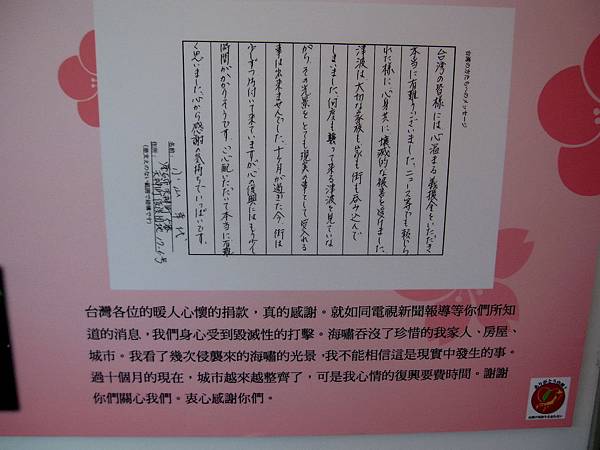 台湾のかたたちへのメッセージ
台湾の皆様には心温まる義援金をいただき
本当に有難うございました。ニュース等でも報じら
れた様に心身共に壊滅的な被害を受けました。
津波は大切な家族も家も街も呑み込んで
しまいました。何度も襲って来る津波を見ていな
がら、その光景をとても現実の事として受入れる
事は出来ませんでした。十ヶ月が過ぎた今、街は
少しずつ片付いて来ていますが心の復興にはもう少し
時間がかかりそうです。ご心配いただいて本当に有難
く思いました。心から感謝の気持ちでいっぱいです。
名前：小山幸代
住所：
(差支えのない範囲で結構です)
台灣各位的暖人心懷的捐款，真的感謝。就如同電視新聞報導等你們所知
道的消息，我們身心受到毀滅性的打擊。海嘯吞沒了珍惜的我家人、房屋、
城市。我看了幾次侵襲來的海嘯的光景，我不能相信這是現實中發生的事。
過十個月的現在，城市越來越整齊了，可是我心情的復興要費時間。謝謝
你們關心我們。衷心感謝你們。